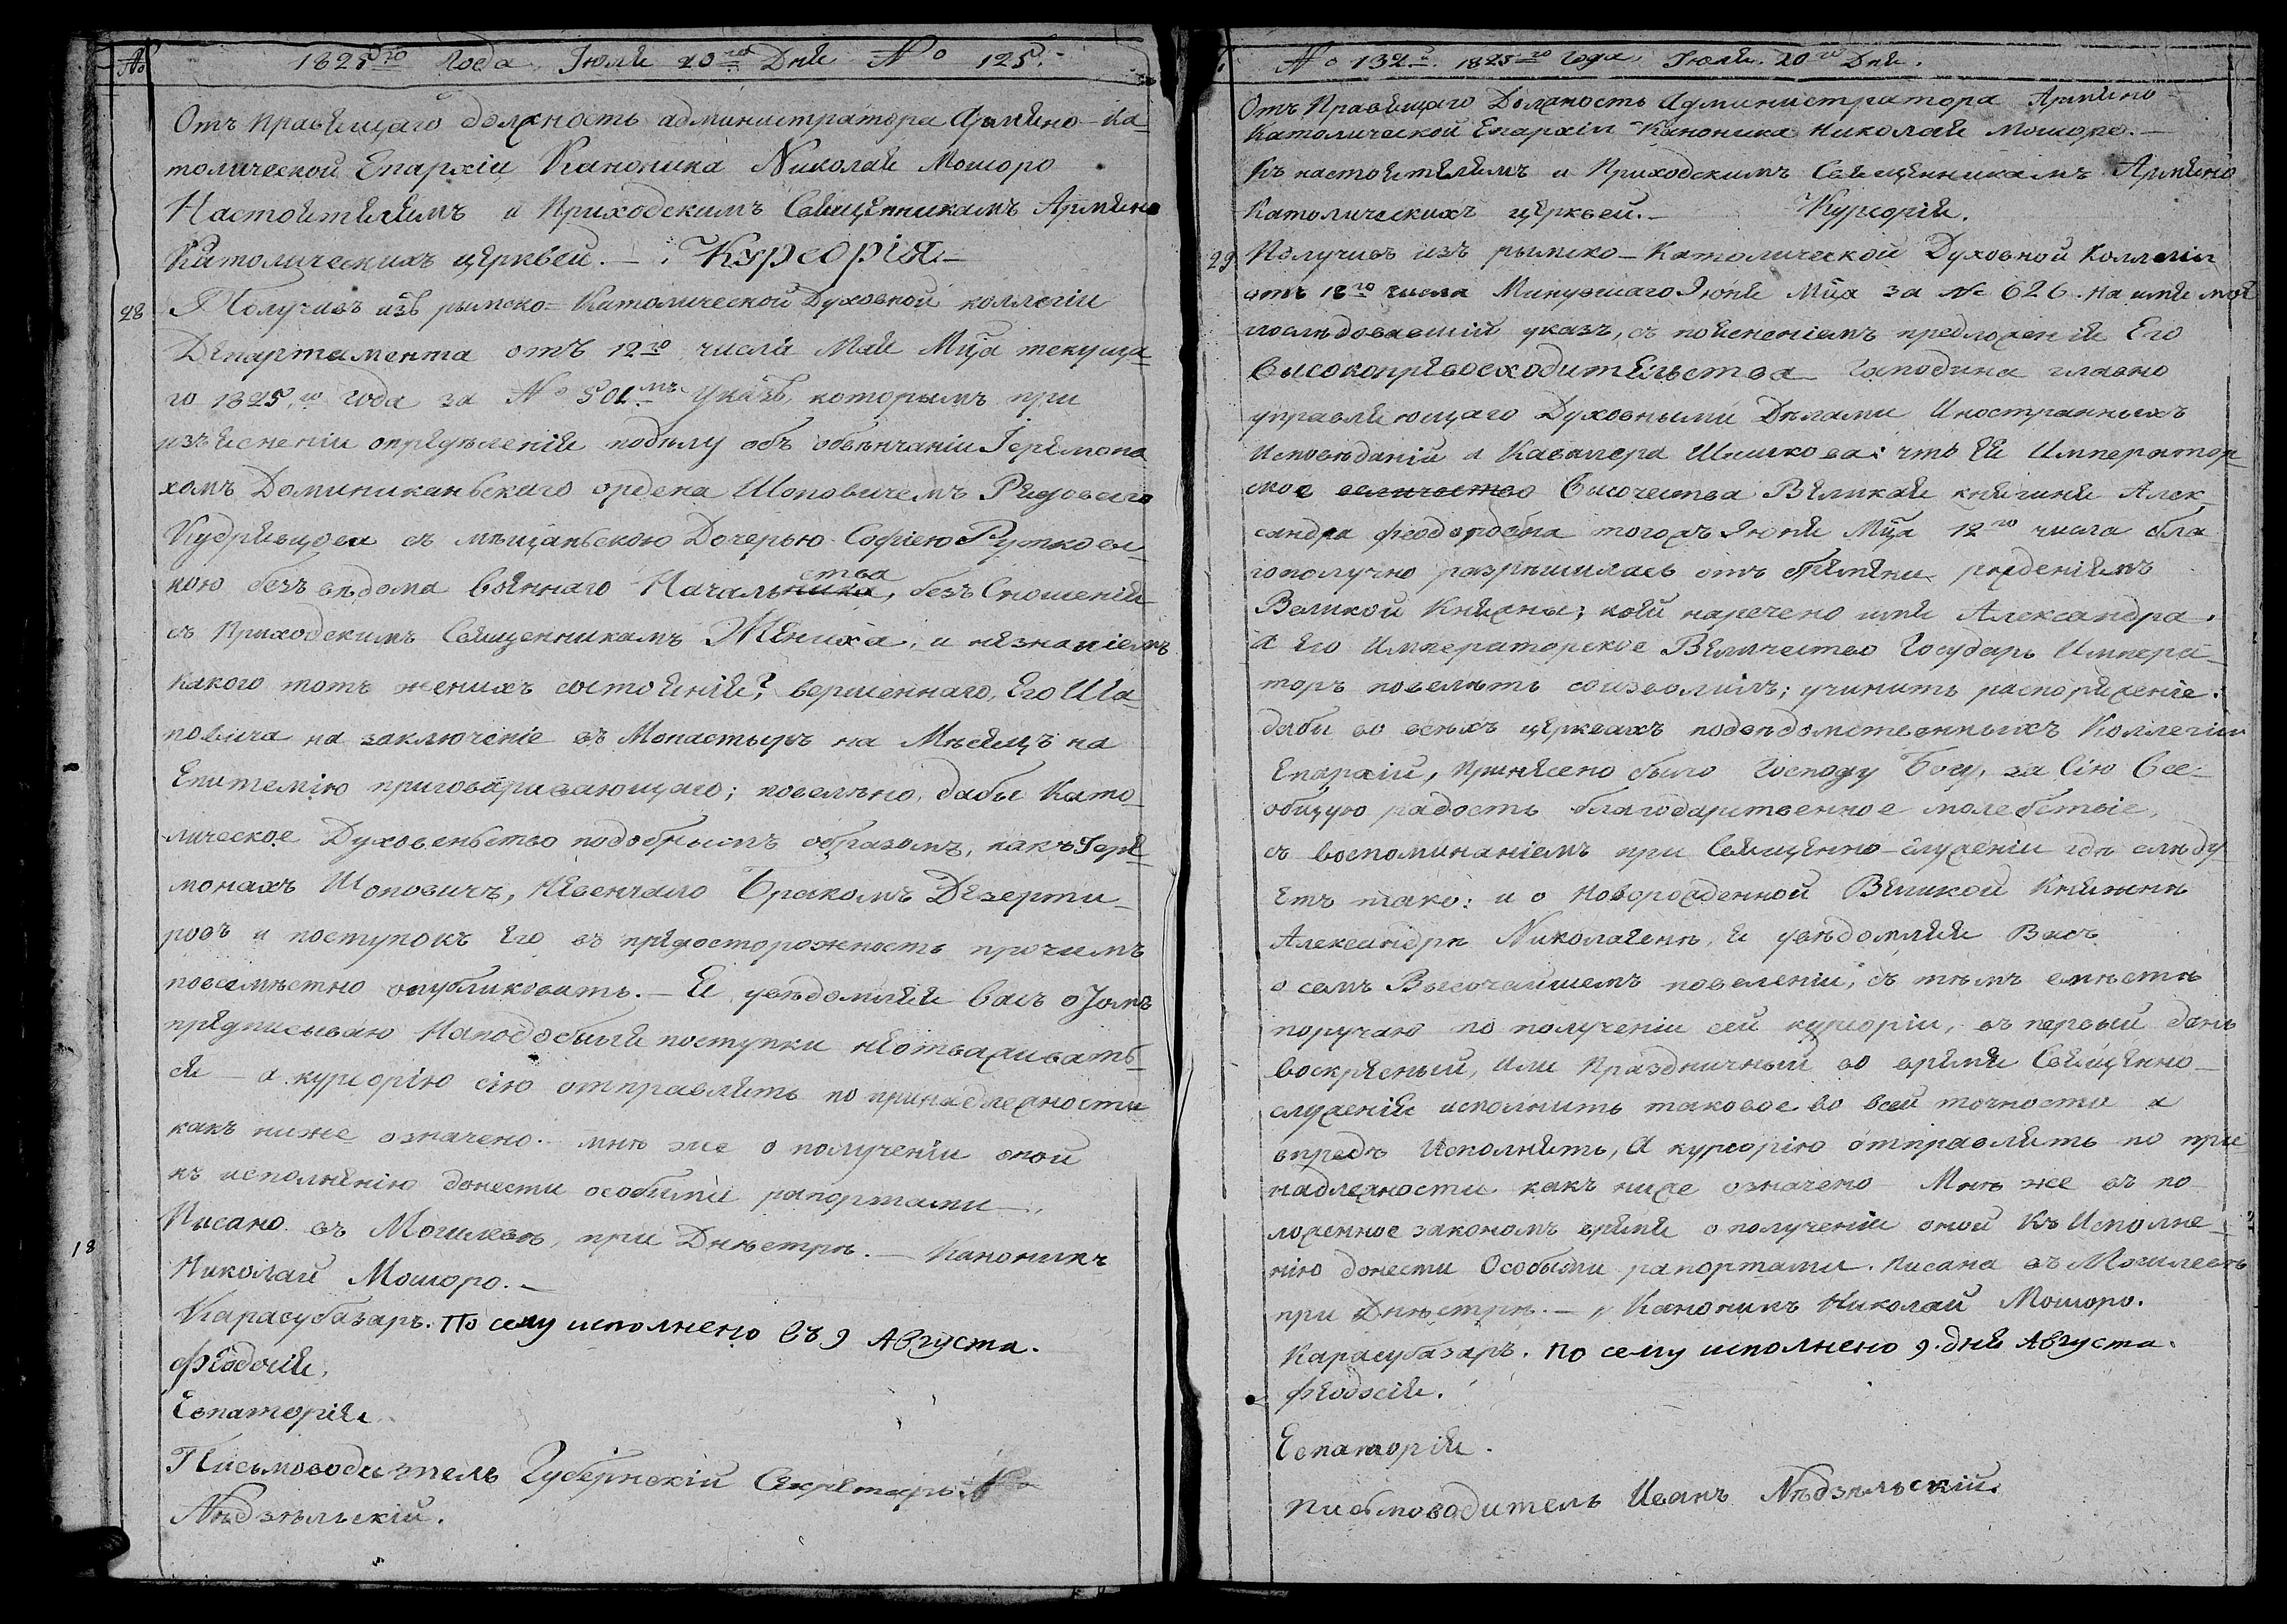 № 1825го Года Июля 20го Дня № 125.
Отъ Правящаго должность администратора Армяно-Ка-
толической Епархіи Каноника Николая Мошоро
Настоятелямъ и Приходскимъ Священникамъ Армяно
Католическихъ церквей. — Курсорія —
28 Получивъ изъ рымско-Католической Духовной коллегіи
Департамента отъ 12го числа Мая Мца текуща-
го 1825го года за № 501мъ Указъ, которымъ при
изъясненіи определенія подѣлу объ обвѣнчаніи Іеремона
хомъ Доминиканьскаго ордена Шоповичемъ Рядоваго
Кудрявцова съ мѣщаньскою Дочерью Софіею Рутков-
кою безъ вѣдома военнаго Начальника ства, безъ Сношенія
съ Приходскимъ Священникамъ Жениха, и незнаніемъ
какого тотъ женихъ состоянія? вершеннаго, Его Шо-
повича на заключеніе въ Монастырь на Мѣсяцъ на
Епитемію приговаривающаго; повелѣно, дабы Като-
лическое Духовеньство подобнымъ образомъ, какъ Іере-
монахъ Шоповичъ, невенчало Бракомъ Дезерти-
ровъ и поступокъ его въ предосторожность прочимъ
повсемѣстно опубликовать. — Я увѣдомляя васъ о Томъ
предписываю Наподобныя поступки неотваживать-
ся — а курсорію сію отправлять по принадлежности
какъ ниже означено. мнѣ же о полученіи оной
къ исполненію донести особыми рапортами —.
18 Писано въ Могилевѣ, при Днѣстрѣ. — Каноникъ
Николай Мошоро. —
Карасубазаръ. По сему исполнено въ 9 Августа.
Феодосія,
Евпаторія
Письмоводитель Губернскій Секретарь
Нѣдзѣльскій.
№ 132. 1825го года, Июля 20го Дня.
Отъ Правящаго Должность Администратора Армяно
Католической Епархіи Каноника Николая Мошоро. —
Къ настоятелямъ и Приходскимъ Священникамъ Армяно
Католическихъ церквей. — Курсорія.
29 Получивъ изъ рымско-Католической Духовной Коллегіи
отъ 18го числа Минувшаго Июня Мца за № 626. на имя моё
последовавшій указъ, съ поясненіемъ предложенія Его
Высокопревосходительства Господина главно
управляющаго Духовными Дѣлами Иностранныхъ
Исповѣданій и Кавалера Шишкова: что Ея Император-
ское величество Высочества Великая княгиня Алек-
сандра феодоровна тогожъ Июня Мца 12го числа бла
гополучно разрѣшилась отъ бремени рожденіемъ
Великой Княжны; коей наречено имя Александра.
А Его Императорское Величество Государь Импера-
торъ повелѣть соизволилъ; учинить распоряженіе:
дабы во всѣхъ церквахъ подвѣдомственныхъ Коллегіи
Епархій, Принесено было Господу Богу, за Сію Все-
общую радость благодарственное молебствіе,
съ воспоминаніемъ при Священно-служеніи гдѣ слѣду
етъ тако: и о Новорожденной Великой Княжнѣ
Александрѣ Николаевнѣ, Я увѣдомляя Васъ
о семъ Высочайшемъ повеленіи, съ тѣмъ вмѣстѣ
поручаю по полученіи сей курсоріи, въ первый день
воскресный, или Праздничный во время Священно-
служенія исполнить таковое во всей точности и
впредь Исполнять, А курсорію отправлять по при
надлежности какъ ниже означено Мнѣ же въ по
ложенное закономъ время о полученіи оной Къ Исполне-
нію донести Особыми рапортами. Писана въ Могилевѣ
при Днѣстрѣ. — Каноникъ Николай Мошоро.
Карасубазаръ. По сему исполнено 9. дня Августа.
Феодосія.
Евпаторія.
Письмоводитель Иванъ Нѣдзѣльскій.